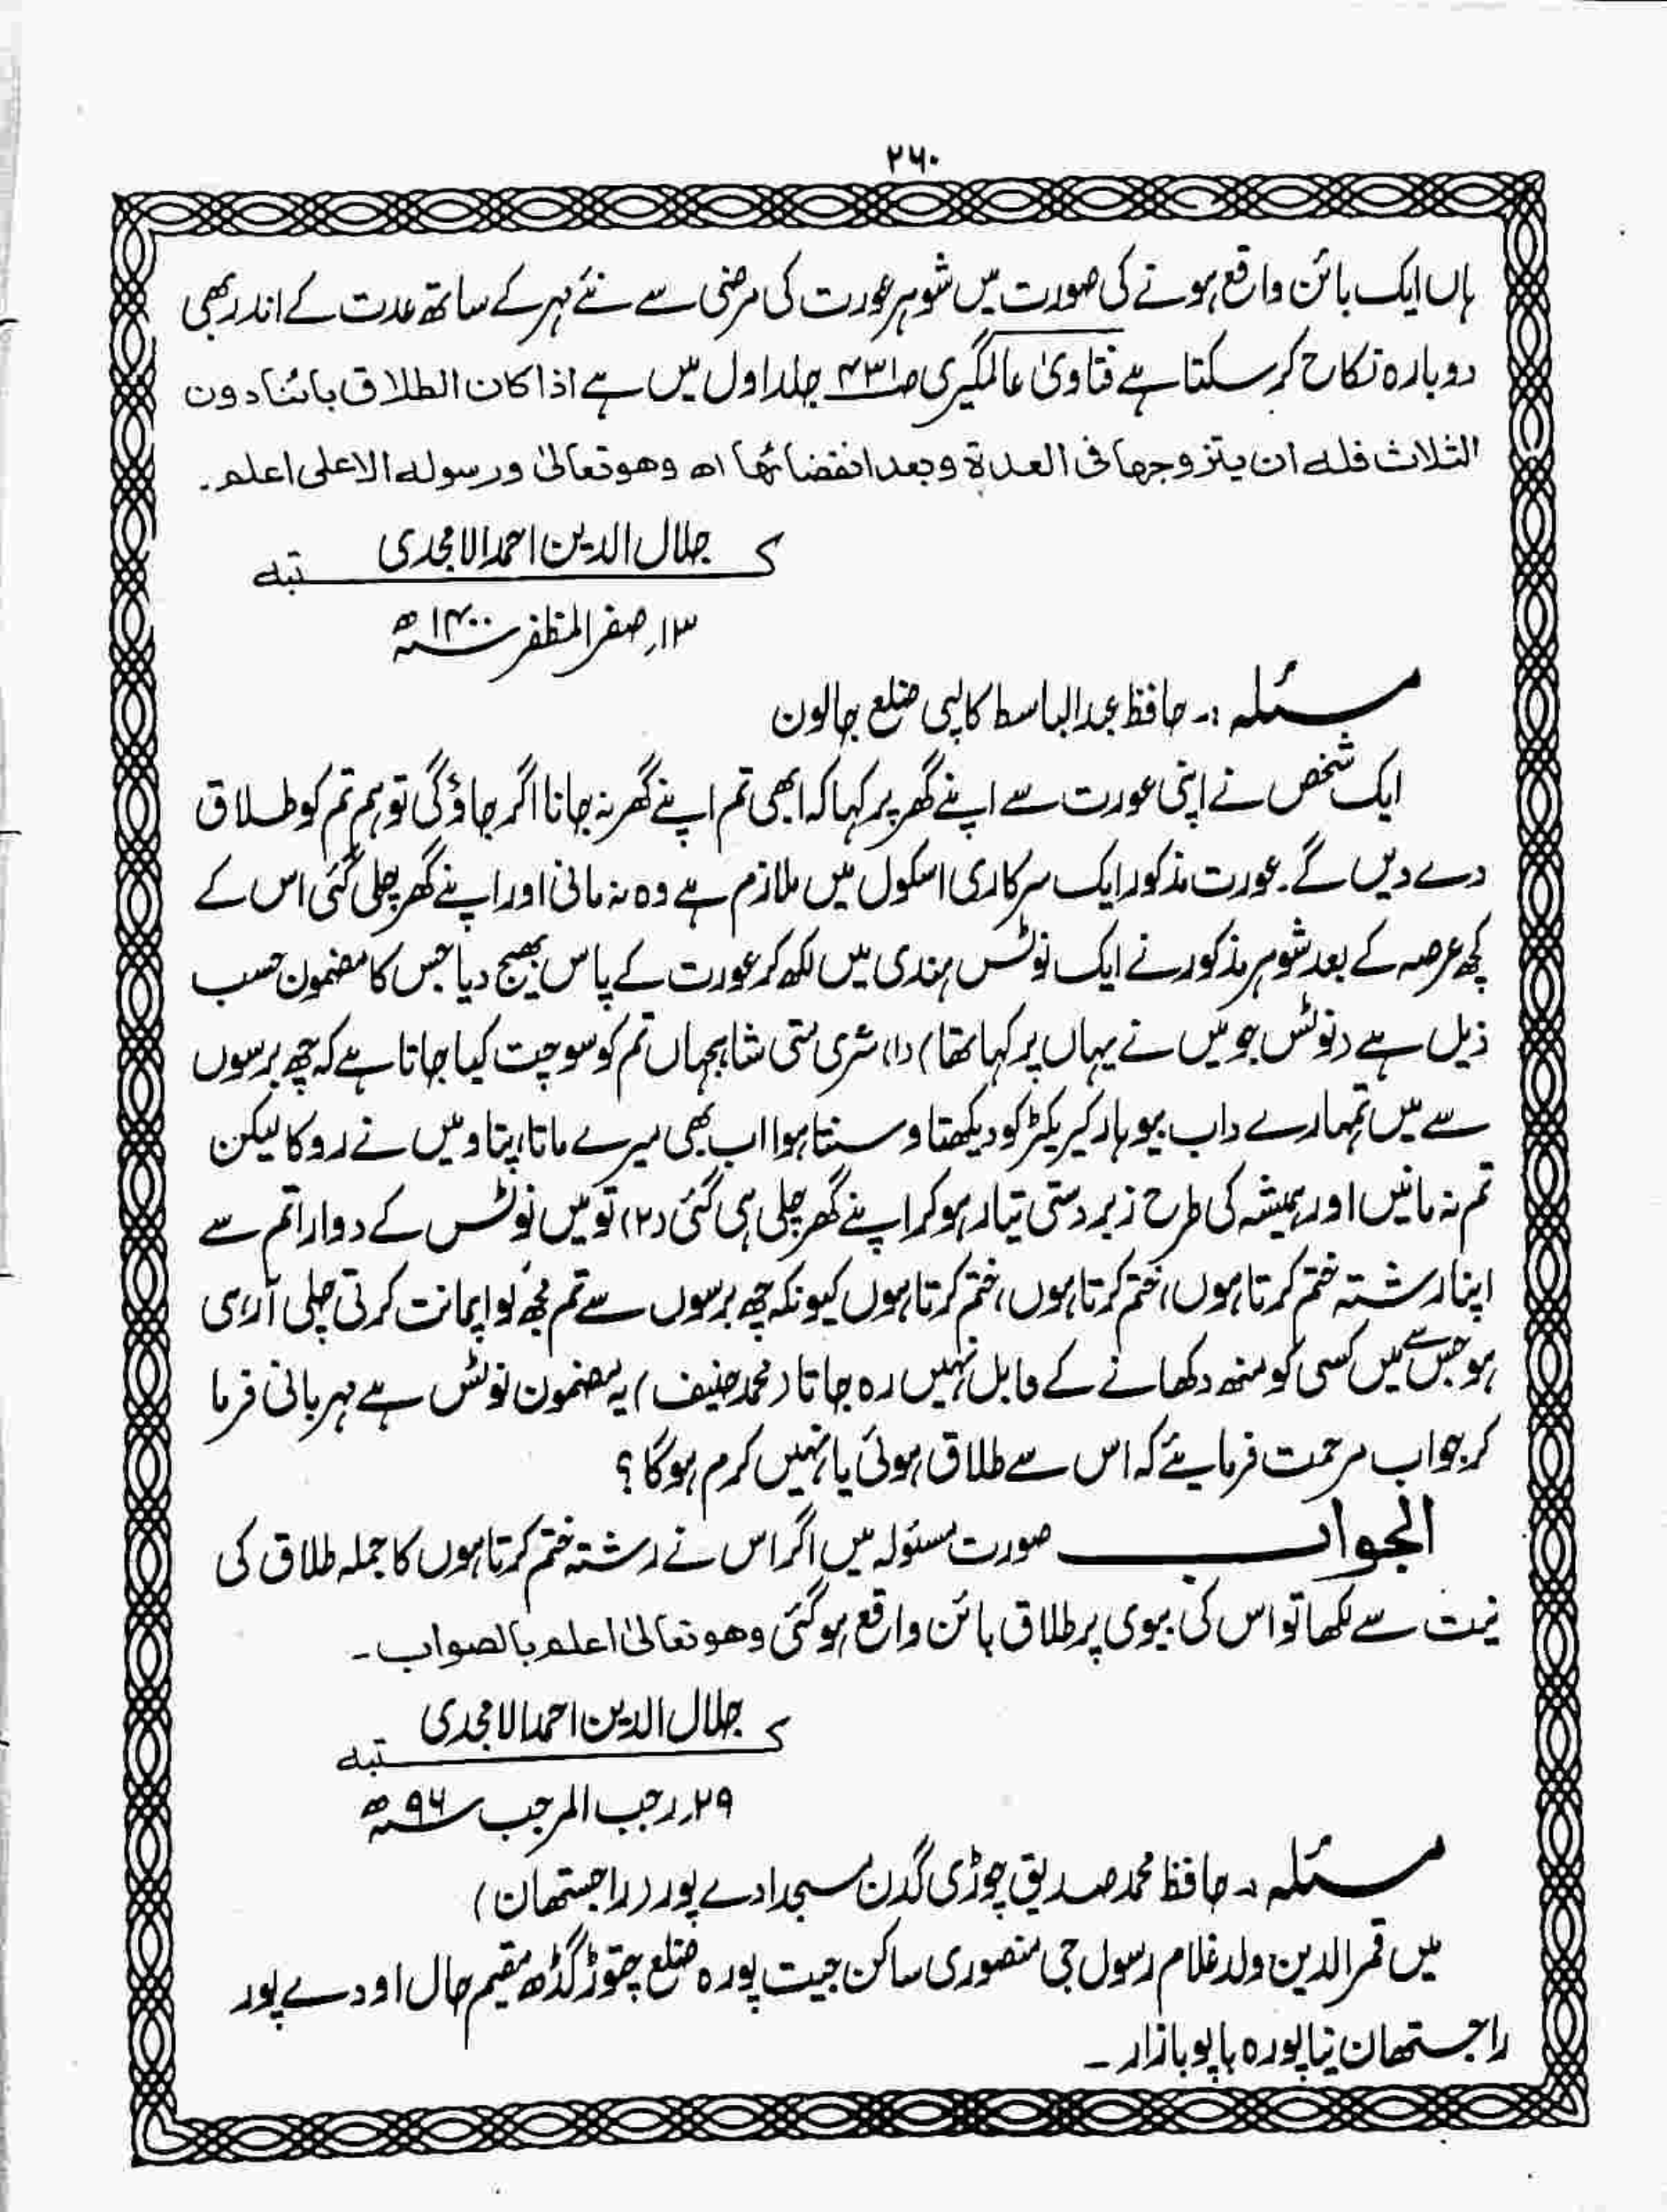 ۲۶۰
ہاں ایک بائن واقع ہونے کی صورت میں شوہر عورت کی مرضی سے نئے مہر کے ساتھ عدت کے اندر بھی
دوبارہ نکاح کر سکتا ہے فتاویٰ عالمگیری ص۴۳۱ جلد اول میں ہے اذا کان الطلاق بائنا دون
الثلاث فلہ ان یتزوجھا فی العدۃ وبعد انقضائھا اھ وھو تعالیٰ ورسولہ الاعلی اعلم۔
کتبہ جلال الدین احمد الامجدی
۱۳؍ صفر المظفر ۱۴۰۰ھ
مسئلہ :۔ حافظ عبد الباسط کالپی ضلع جالون
ایک شخص نے اپنی عورت سے اپنے گھر پر کہا کہ ابھی تم اپنے گھر نہ جانا اگر جاؤگی تو ہم تم کو طلاق
دے دیں گے۔ عورت مذکور ایک سرکاری اسکول میں ملازم ہے وہ نہ مانی اور اپنے گھر چلی گئی اس کے
کچھ عرصہ کے بعد شوہر مذکور نے ایک نوٹس ہندی میں لکھ کر عورت کے پاس بھیج دیا جس کا مضمون حسب
ذیل ہے (نوٹس جو میں نے یہاں پر کہا تھا) (۱) شری متی شاہجہاں تم کو سوچت کیا جاتا ہے کہ چھ برسوں
سے میں تمہارے داب بیوہار کیریکٹر کو دیکھتا و سنتا ہوا اب بھی میرے ماتا پتا و میں نے روکا لیکن
تم نہ مانیں اور ہمیشہ کی طرح زبردستی تیار ہو کر اپنے گھر چلی ہی گئی (۲) تو میں نوٹس کے دوارا تم سے
اپنا رشتہ ختم کرتا ہوں، ختم کرتا ہوں، ختم کرتا ہوں کیونکہ چھ برسوں سے تم مجھ کو اپمانت کرتی چلی آرہی
ہو جس سے میں کسی کو منھ دکھانے کے قابل نہیں رہ جاتا (محمد حنیف) یہ مضمون نوٹس ہے مہربانی فرما
کر جواب مرحمت فرمایئے کہ اس سے طلاق ہوئی یا نہیں کرم ہوگا؟
الجواب صورت مسئولہ میں اگر اس نے رشتہ ختم کرتا ہوں کا جملہ طلاق کی
نیت سے لکھا تو اس کی بیوی پر طلاق بائن واقع ہوگئی وھو تعالیٰ اعلم بالصواب۔
کتبہ جلال الدین احمد الامجدی
۲۹؍ رجب المرجب ۹۶ھ
مسئلہ :۔ حافظ محمد صدیق چوڑی گدن مسجد ادے پور (راجستھان)
میں قمر الدین ولد غلام رسول جی منصوری ساکن جیت پورہ ضلع چتوڑ گڈھ مقیم حال اودے پور
راجستھان نیا پورہ باپو بازار۔